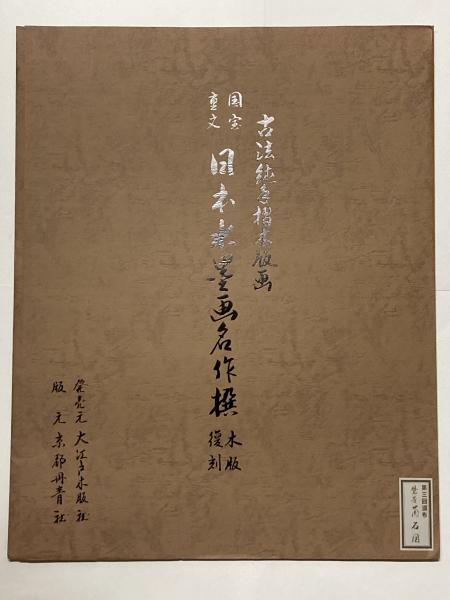 古法純手摺木版画
国宝
重文
日本水墨画名作撰
木版
復刻
発売元 大江戸木版社
版元 京都丹青社
第三回頒布
蘭石図